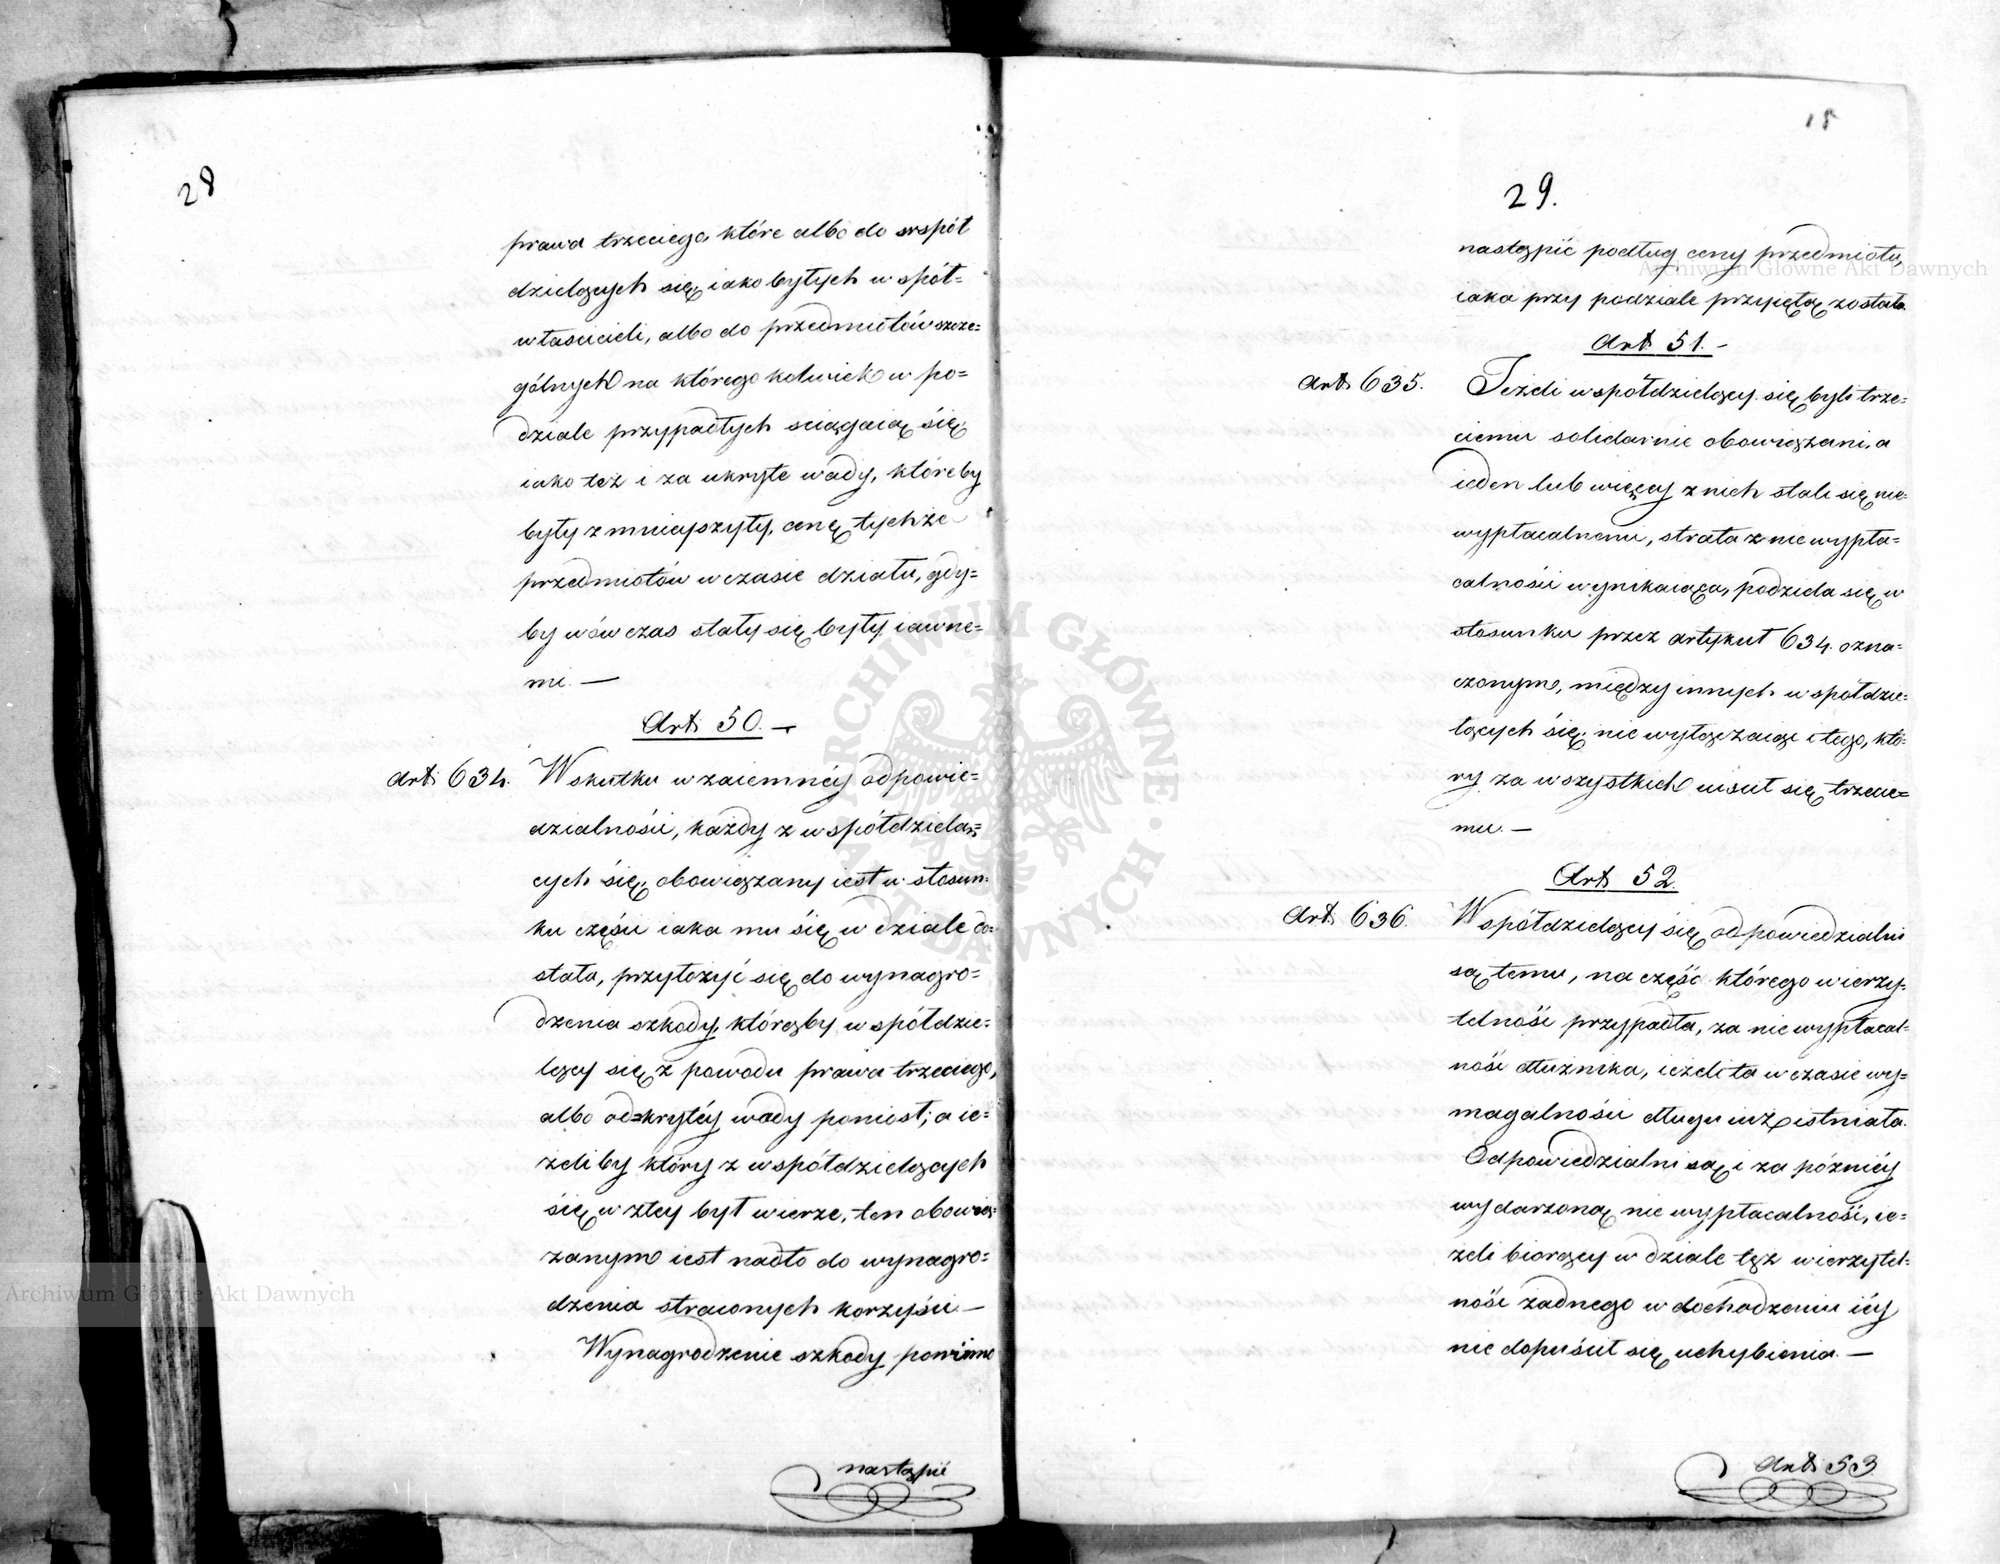 28
prawa trzeciego, które albo do wspól
dzielących się, iako byłych w spół=
właścicieli, albo do przedmiotów szcze=
gólnych na którego kolwiek w po=
dziale przypadłych sciągaią się,
iako też i za ukryte wady, które by
były zmnieyszyły, cenę tychże
przedmiotów w czasie działu, gdy=
by wówczas stały się były iawne=
mi. —
Art. 50. —
Art. 634. W skutku wzaiemnéy odpowie=
dzialności, każdy z współdzielą=
cych się, obowiązany iest w stosun=
ku części iaka mu się w dziale do=
stała, przyłożyć się do wynagro=
dzenia szkody, którąby współdzie=
lący się z powodu prawa trzeciego,
albo odkrytéy wady poniosł; a ie=
żeliby który z współdzielących
się w złey był wierze, ten obowią=
zanym iest nadto do wynagro=
dzenia straconych korzyści —
Wynagrodzenie szkody powinno
nastąpić
18
29.
nastąpić podług ceny przedmiotu,
iaka przy podziale przyiętą została.
Art. 51. —
Art. 635. Jeżeli współdzielący się byli trze=
ciemu solidarnie obowiązani, a
ieden lub więcéy z nich stali się nie=
wypłacalnemi, strata z niewypła=
calności wynikaiąca, podziela się w
stosunku przez artykuł 634. ozna=
czonym, między innych współdzie=
lących się, nie wyłączaiąc i tego, któ=
ry za wszystkich uiścił się trzecie=
mu. —
Art. 52.
Art. 636. Współdzielący się odpowiedzialni
są temu, na część którego wierzy=
telność przypadła, za niewypłacal=
ność dłużnika, ieżeli ta w czasie wy=
magalności długu iuż istniała.
Odpowiedzialni są i za późniéy
wydarzoną niewypłacalność, ie=
żeli biorący w dziale tęż wierzytel=
ność żadnego w dochodzeniu iéy
nie dopuścił się uchybienia. —
Art. 53
Archiwum Główne Akt Dawnych
Archiwum Główne Akt Dawnych
ARCHIWUM GŁÓWNE AKT DAWNYCH